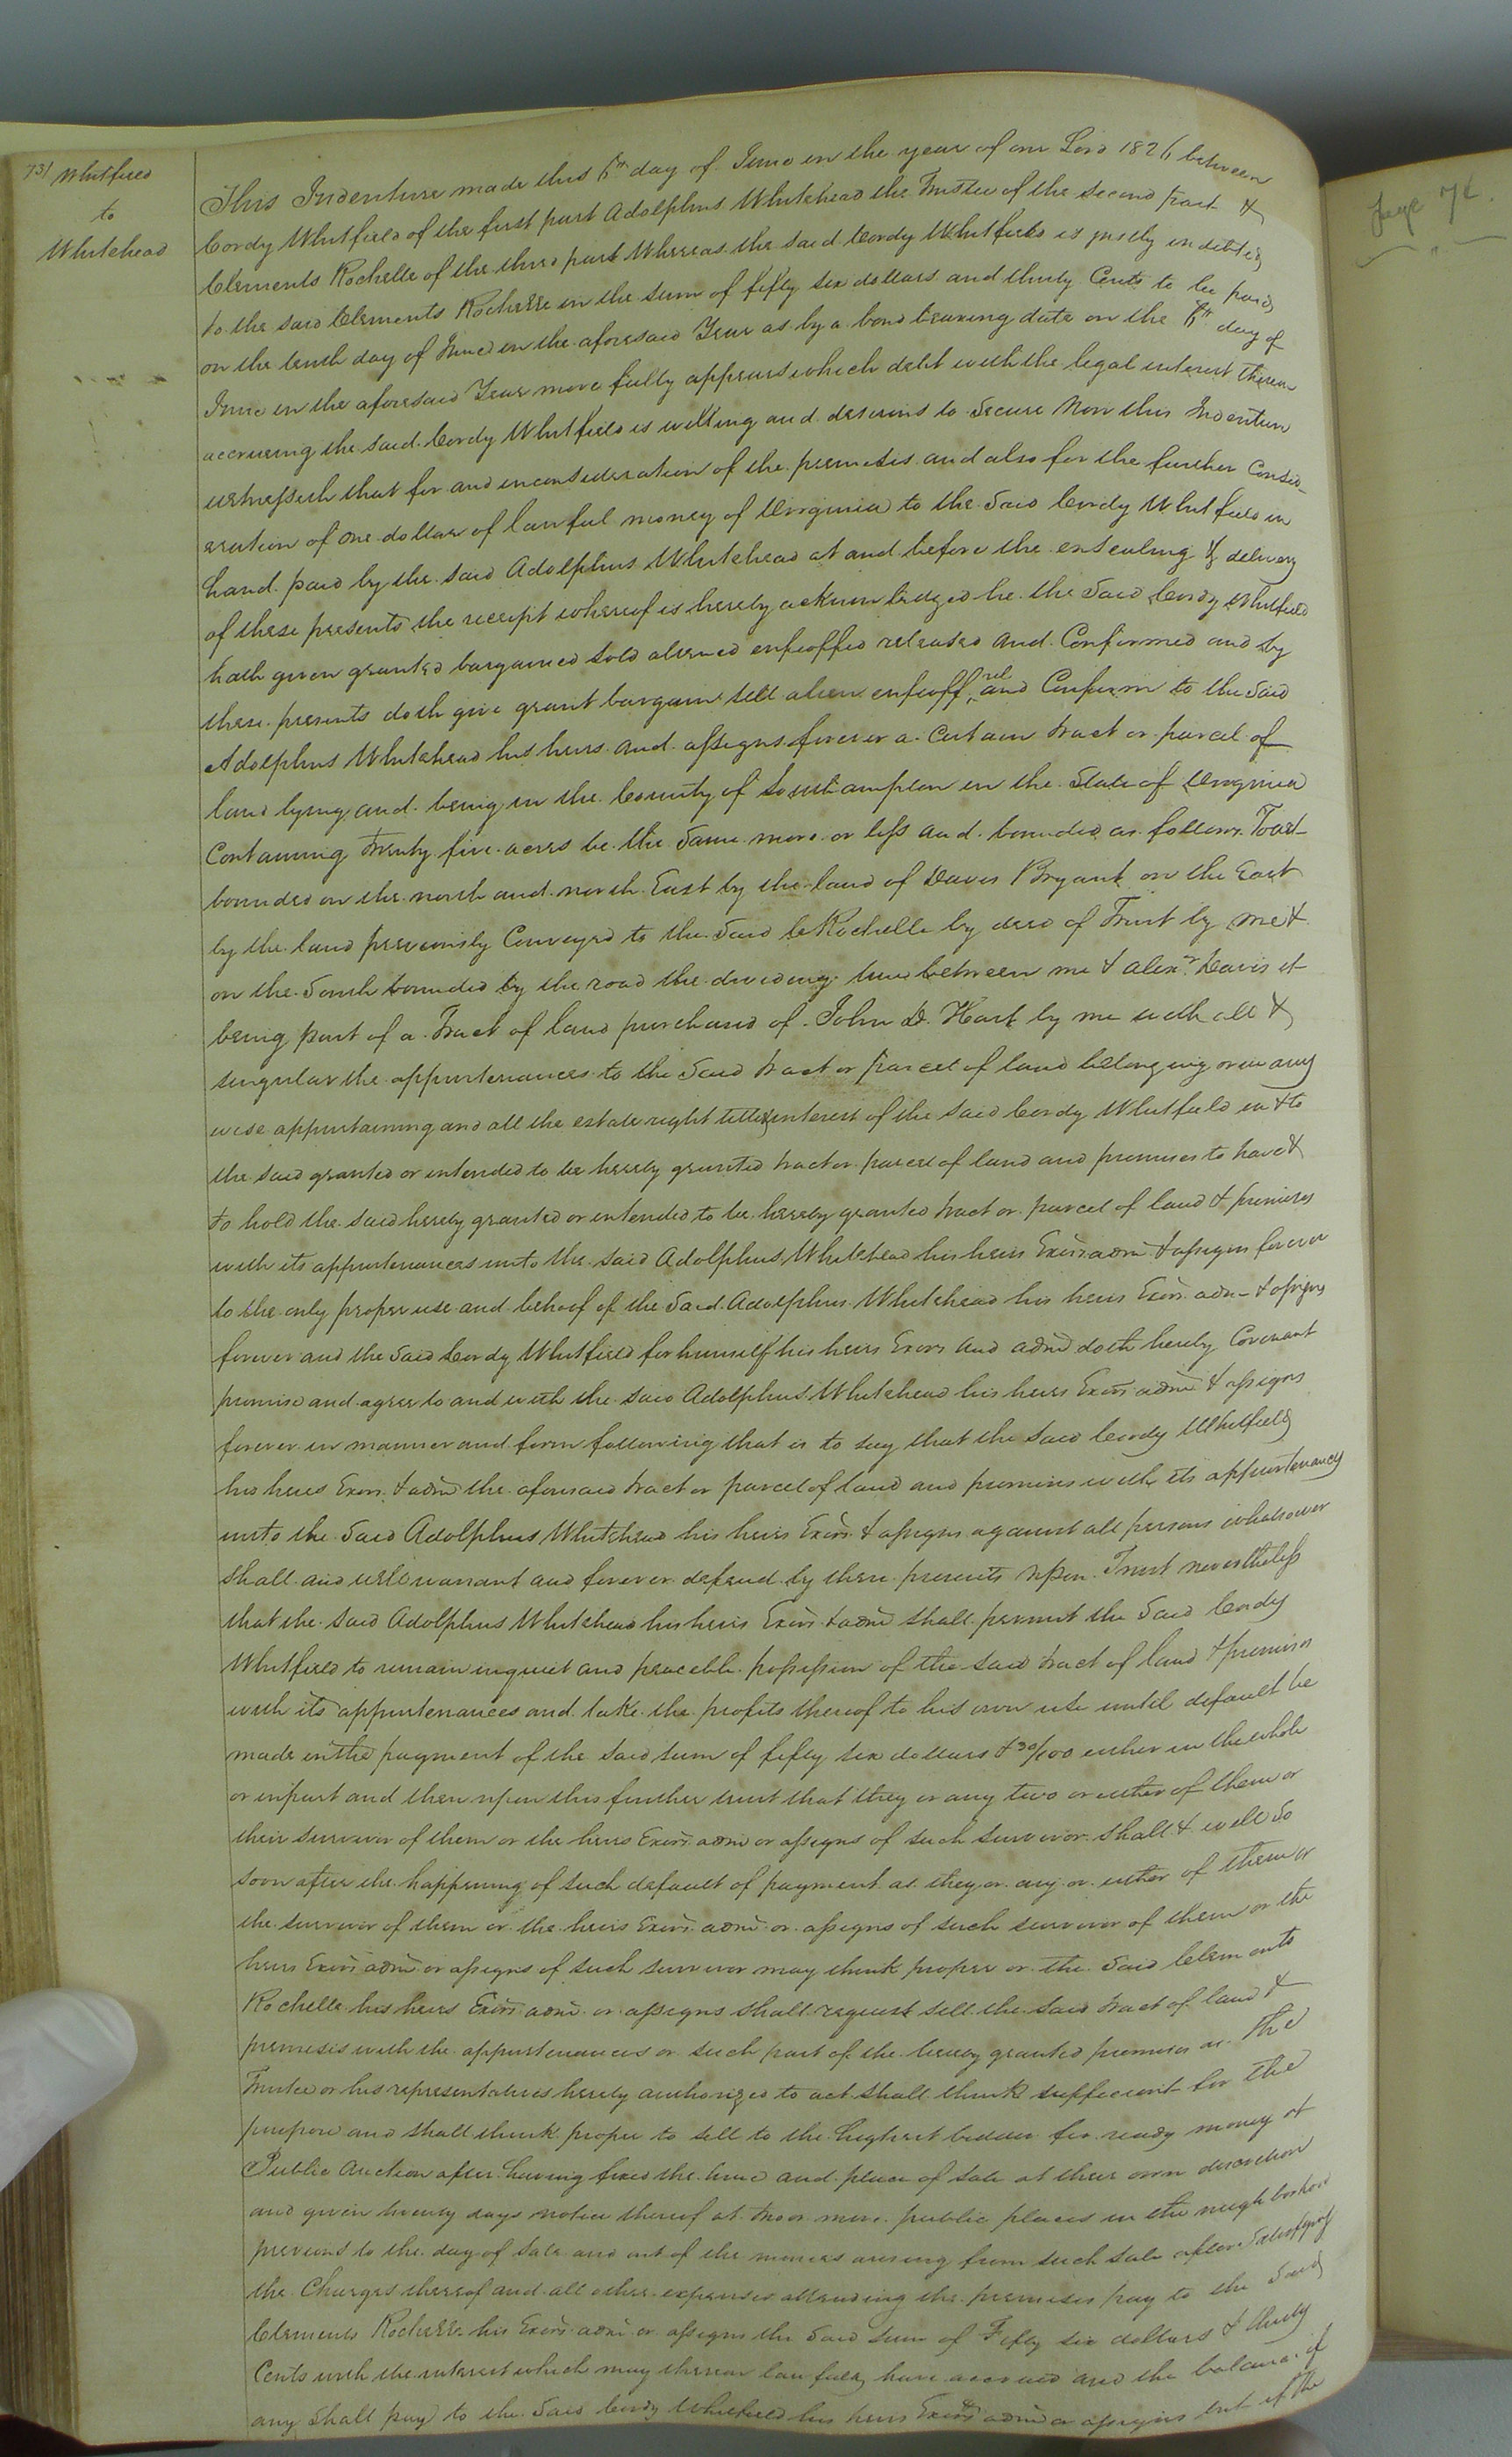 731 Whitfield
to
Whitehead
Page 74.
This Indenture made this 6th day of June in the year of our Lord 1826 between
Cordy Whitfield of the first part Adolphus Whitehead the Trustee of the second part &
Clements Rochelle of the third part Whereas the said Cordy Whitfield is justly indebted
to the said Clements Rochelle in the sum of fifty six dollars and thirty Cents to be paid
on the tenth day of June in the aforesaid Year as by a bond bearing date on the 6th day of
June in the aforesaid Year more fully appears which debt with the legal interest thereon
accruing the said Cordy Whitfield is willing and desirous to Secure Now this Indenture
witnesseth that for and in consideration of the premises and also for the further Consid-
eration of one dollar of lawful money of Virginia to the Said Cordy Whitfield in
hand paid by the said Adolphus Whitehead at and before the ensealing & delivery
of these presents the receipt whereof is hereby acknowledged he the Said Cordy Whitfield
hath given granted bargained sold aliened enfeoffed released and Confirmed and by
these presents doth give grant bargain sell alien enfeoff, rel and Confirm to the Said
Adolphus Whitehead his heirs and assigns forever a Certain tract or parcel of
land lying and being in the County of Southampton in the State of Virginia
Containing Twenty five acres be the Same more or less and bounded as follows Towit
bounded on the north and north East by the land of Davis Bryant on the East
by the land previously Conveyed to the Said C Rochelle by deed of Trust by me &
on the South bounded by the road the dividing line between me & Alexr. Davis it
being part of a Tract of land purchased of John D. Hart by me with all &
singular the appurtenances to the Said tract or parcel of land belonging or in any
wise appurtaining and all the estate right title & interest of the said Cordy Whitfield in & to
the said granted or intended to be hereby granted tract or parcel of land and premises to have &
to hold the said hereby granted or intended to be hereby granted tract or parcel of land & premises
with its appurtenances unto the said Adolphus Whitehead his heirs Exors admr & assigns forever
to the only proper use and behoof of the Said Adolphus Whitehead his heirs Exors adm & assigns
forever and the Said Cordy Whitfield for himself his heirs Exors and admr doth hereby Covenant
promise and agree to and with the said Adolphus Whitehead his heirs Exors admr & assigns
forever in manner and form following that is to say that the Said Cordy Whitfield
his heirs Exors & admr the aforesaid tract or parcel of land and premises with its appurtenances
unto the Said Adolphus Whitehead his heirs Exors & assigns against all persons whatsoever
shall and will warrant and forever defend by these presents upon Trust nevertheless
that the said Adolphus Whitehead his heirs Exors & admr shall permit the Said Cordy
Whitfield to remain in quiet and peaceble possession of the said tract of land & premises
with its appurtenances and take the profits thereof to his own use until default be
made in the payment of the said sum of fifty six dollars & 30/100 either in the whole
or in part and then upon this further trust that they or any two or either of them or
their survivor of them or the heirs Exors admr or assigns of such survivor shall & will So
soon after the happening of such default of payment as they or any or either of them or
the survivor of them or the heirs Exors admr or assigns of such survivor of them or the
heirs Exors admr or assigns of such survivor may think proper or the Said Clements
Rochelle his heirs Exors admr or assigns shall request sell the said tract of land &
premises with the appurtenances or such part of the hereby granted premises as the
Trustee or his representatives hereby authorized to act shall think sufficient for the
purpose and shall think proper to sell to the highest bidder for ready money at
Public Auction after having fixed the time and place of sale at their own discretion
and given twenty days notice thereof at two or more public places in the neighborhood
previous to the day of sale and out of the monies arising from such sale after Satisfying
the Charges thereof and all other expenses attending the premises pay to the Said
Clements Rochelle his Exors admr or assigns the Said sum of Fifty six dollars & thirty
Cents with the interest which may thereon lawfully have accrued and the balance if
any shall pay to the Said Cordy Whitfield his heirs Exors admr or assigns but if the